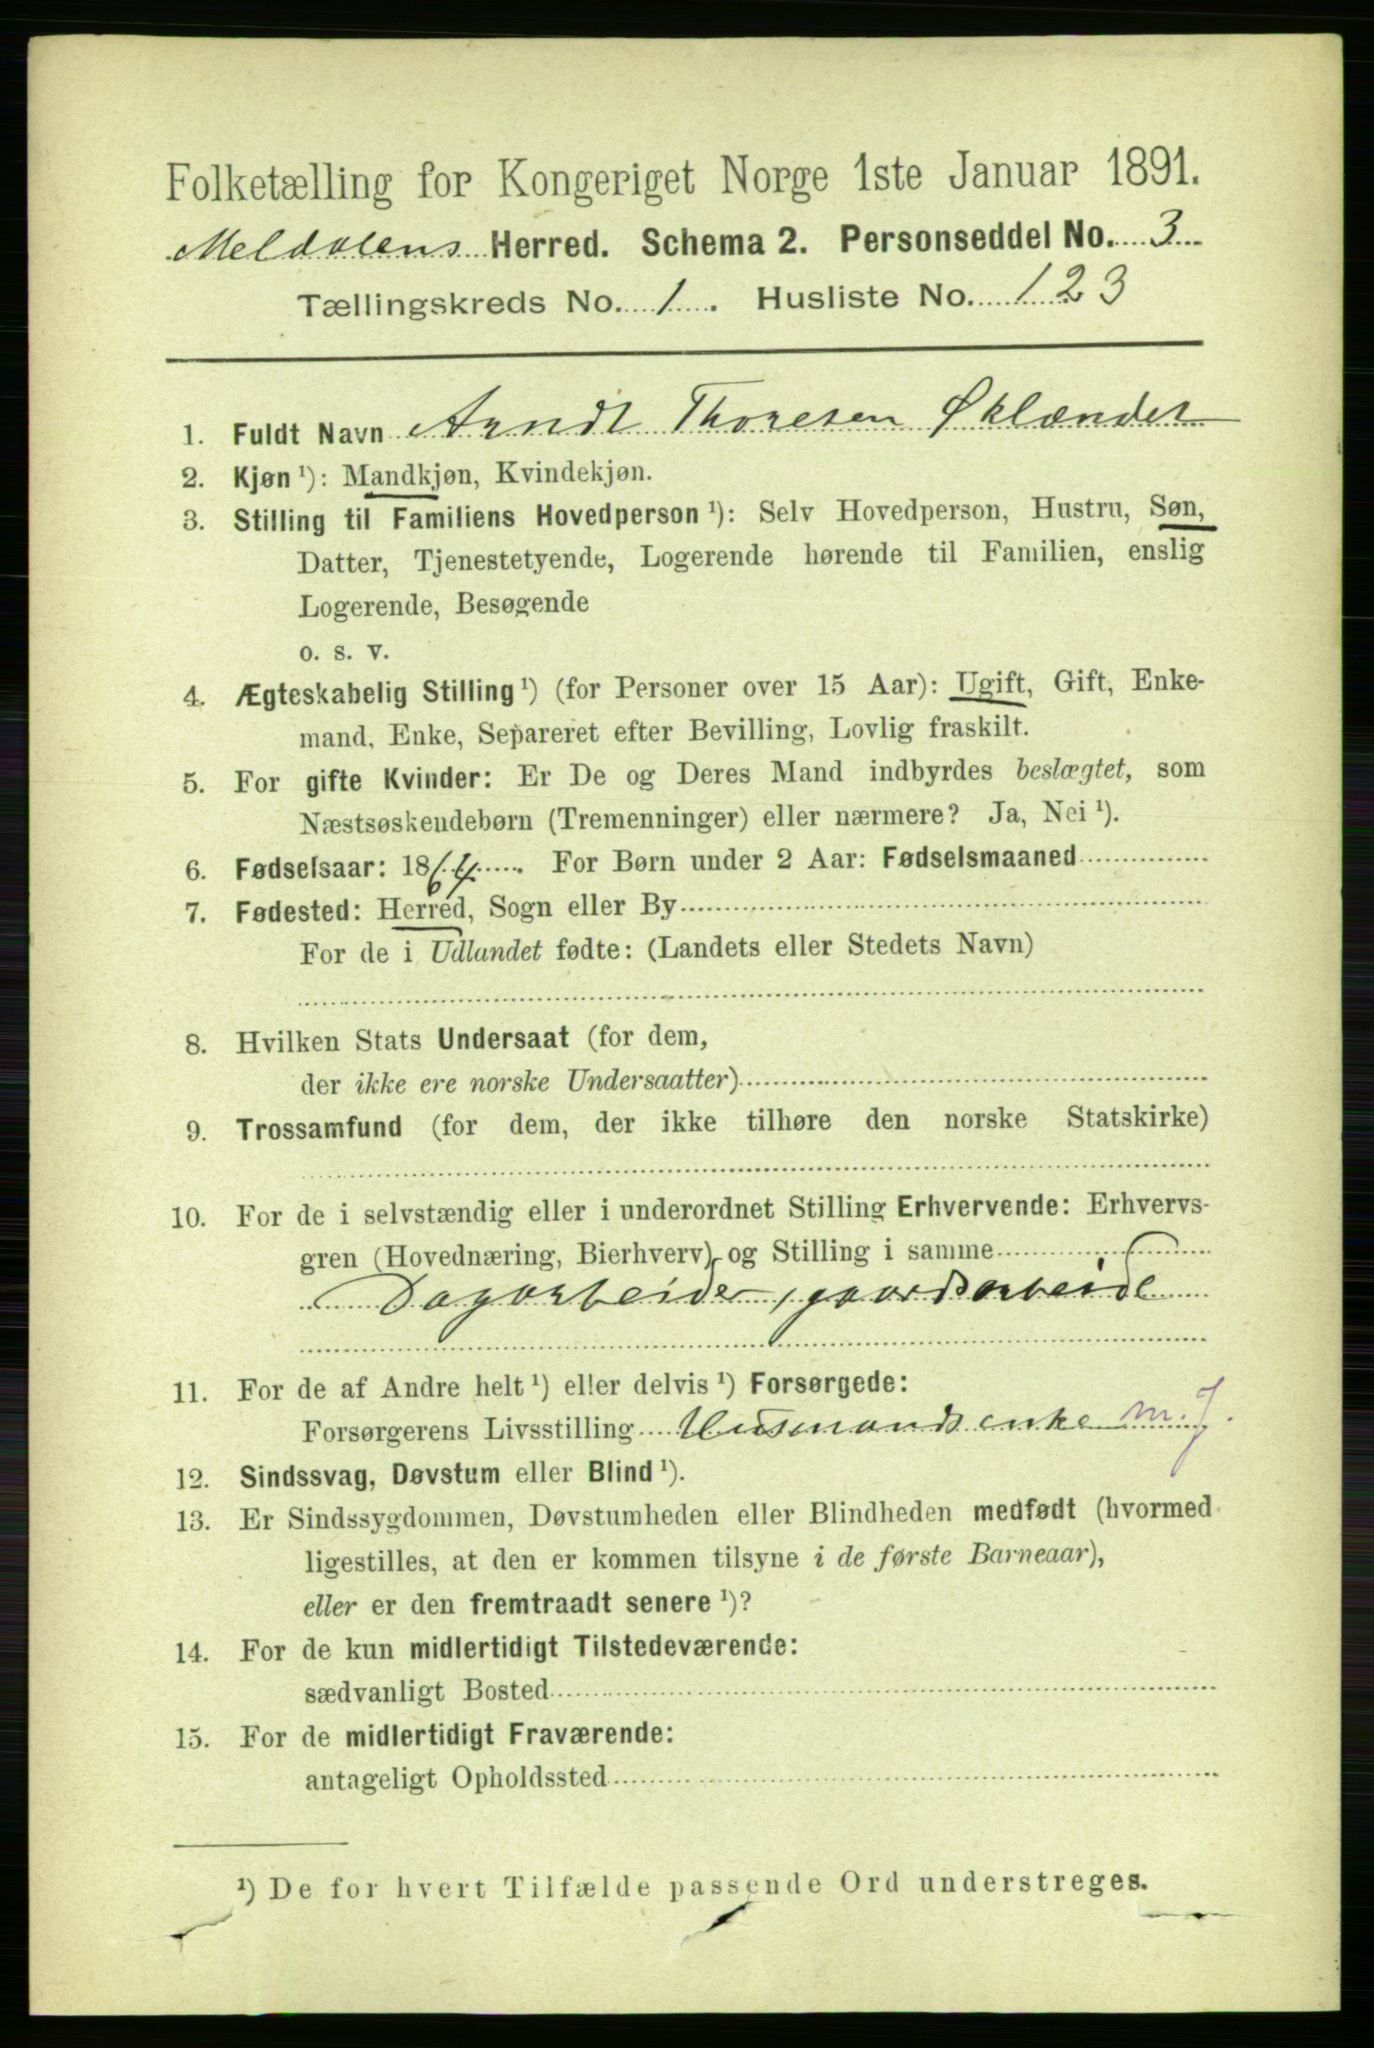 Folketælling for Kongeriget Norge 1ste Januar 1891.
Meldalens Herred. Schema 2. Personseddel No. 3
Tællingskreds No. 1. Husliste No. 123
1. Fuldt Navn Arndt Thoresen Øklændet
2. Kjøn ¹): Mandkjøn, Kvindekjøn.
3. Stilling til Familiens Hovedperson ¹): Selv Hovedperson, Hustru, Søn,
Datter, Tjenestetyende, Logerende hørende til Familien, enslig
Logerende, Besøgende
o. s. v.
4. Ægteskabelig Stilling ¹) (for Personer over 15 Aar): Ugift, Gift, Enke-
mand, Enke, Separeret efter Bevilling, Lovlig fraskilt.
5. For gifte Kvinder: Er De og Deres Mand indbyrdes beslægtet, som
Næstsøskendebørn (Tremenninger) eller nærmere? Ja, Nei ¹).
6. Fødselsaar: 18 . For Børn under 2 Aar: Fødselsmaaned
7. Fødested: Herred, Sogn eller By
For de i Udlandet fødte: (Landets eller Stedets Navn)
8. Hvilken Stats Undersaat (for dem,
der ikke ere norske Undersaatter)
9. Trossamfund (for dem, der ikke tilhøre den norske Statskirke)
10. For de i selvstændig eller i underordnet Stilling Erhvervende: Erhvervs-
gren (Hovednæring, Bierhverv) og Stilling i samme
Dagarbeider, gaardsarbeide
11. For de af Andre helt ¹) eller delvis ¹) Forsørgede:
Forsørgerens Livsstilling Husmandsenke m. J.
12. Sindssvag, Døvstum eller Blind ¹).
13. Er Sindssygdommen, Døvstumheden eller Blindheden medfødt (hvormed
ligestilles, at den er kommen tilsyne i de første Barneaar),
eller er den fremtraadt senere ¹)?
14. For de kun midlertidigt Tilstedeværende:
sædvanligt Bosted
15. For de midlertidigt Fraværende:
antageligt Opholdssted
¹) De for hvert Tilfælde passende Ord understreges.